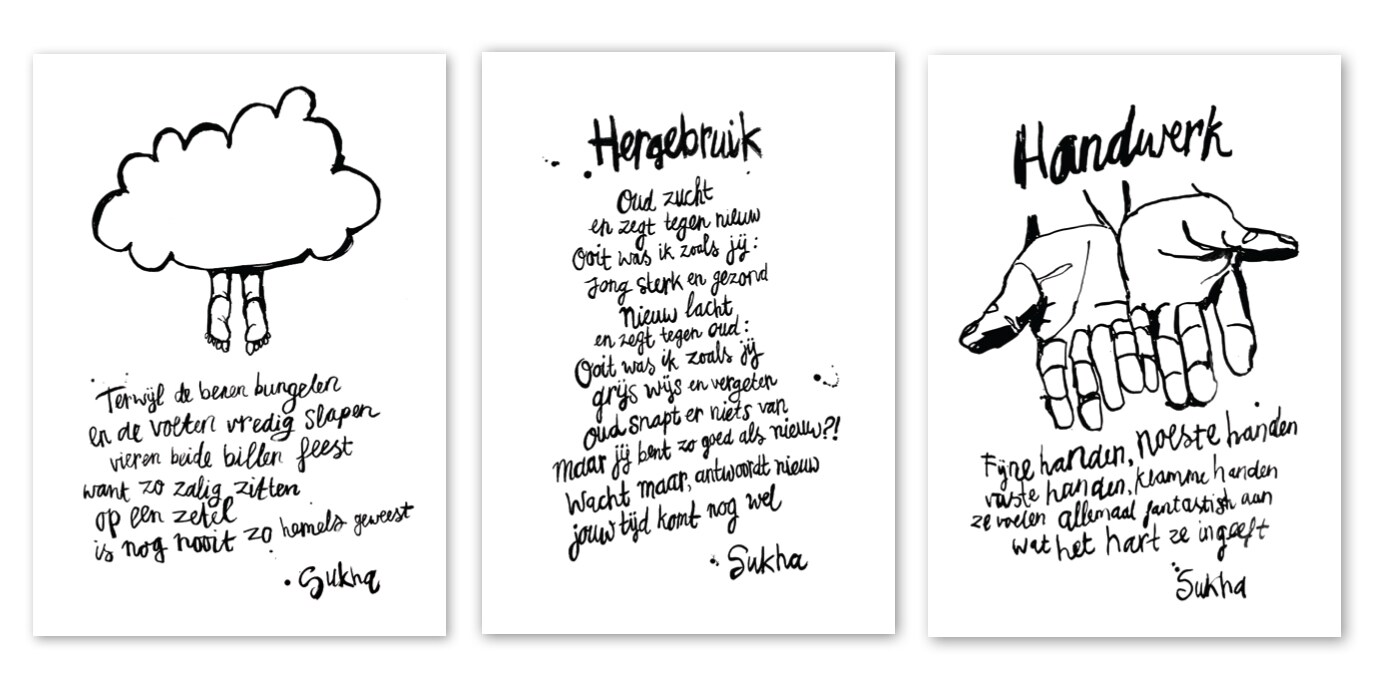 Terwijl de benen bungelen
en de voeten vredig slapen
vieren beide billen feest
want zo zalig zitten
op een zetel
is nog nooit zo hemels geweest
Sukha
Hergebruik
Oud zucht
en zegt tegen nieuw
Ooit was ik zoals jij:
Jong sterk en gezond
Nieuw lacht
en zegt tegen oud:
Ooit was ik zoals jij
grijs wijs en vergeten
Oud snapt er niets van
Maar jij bent zo goed als nieuw?!
Wacht maar, antwoordt nieuw
jouw tijd komt nog wel
Sukha
Handwerk
Fijne handen, noeste handen
vaste handen, klamme handen
ze voelen allemaal fantastisch aan
wat het hart ze ingeeft
Sukha